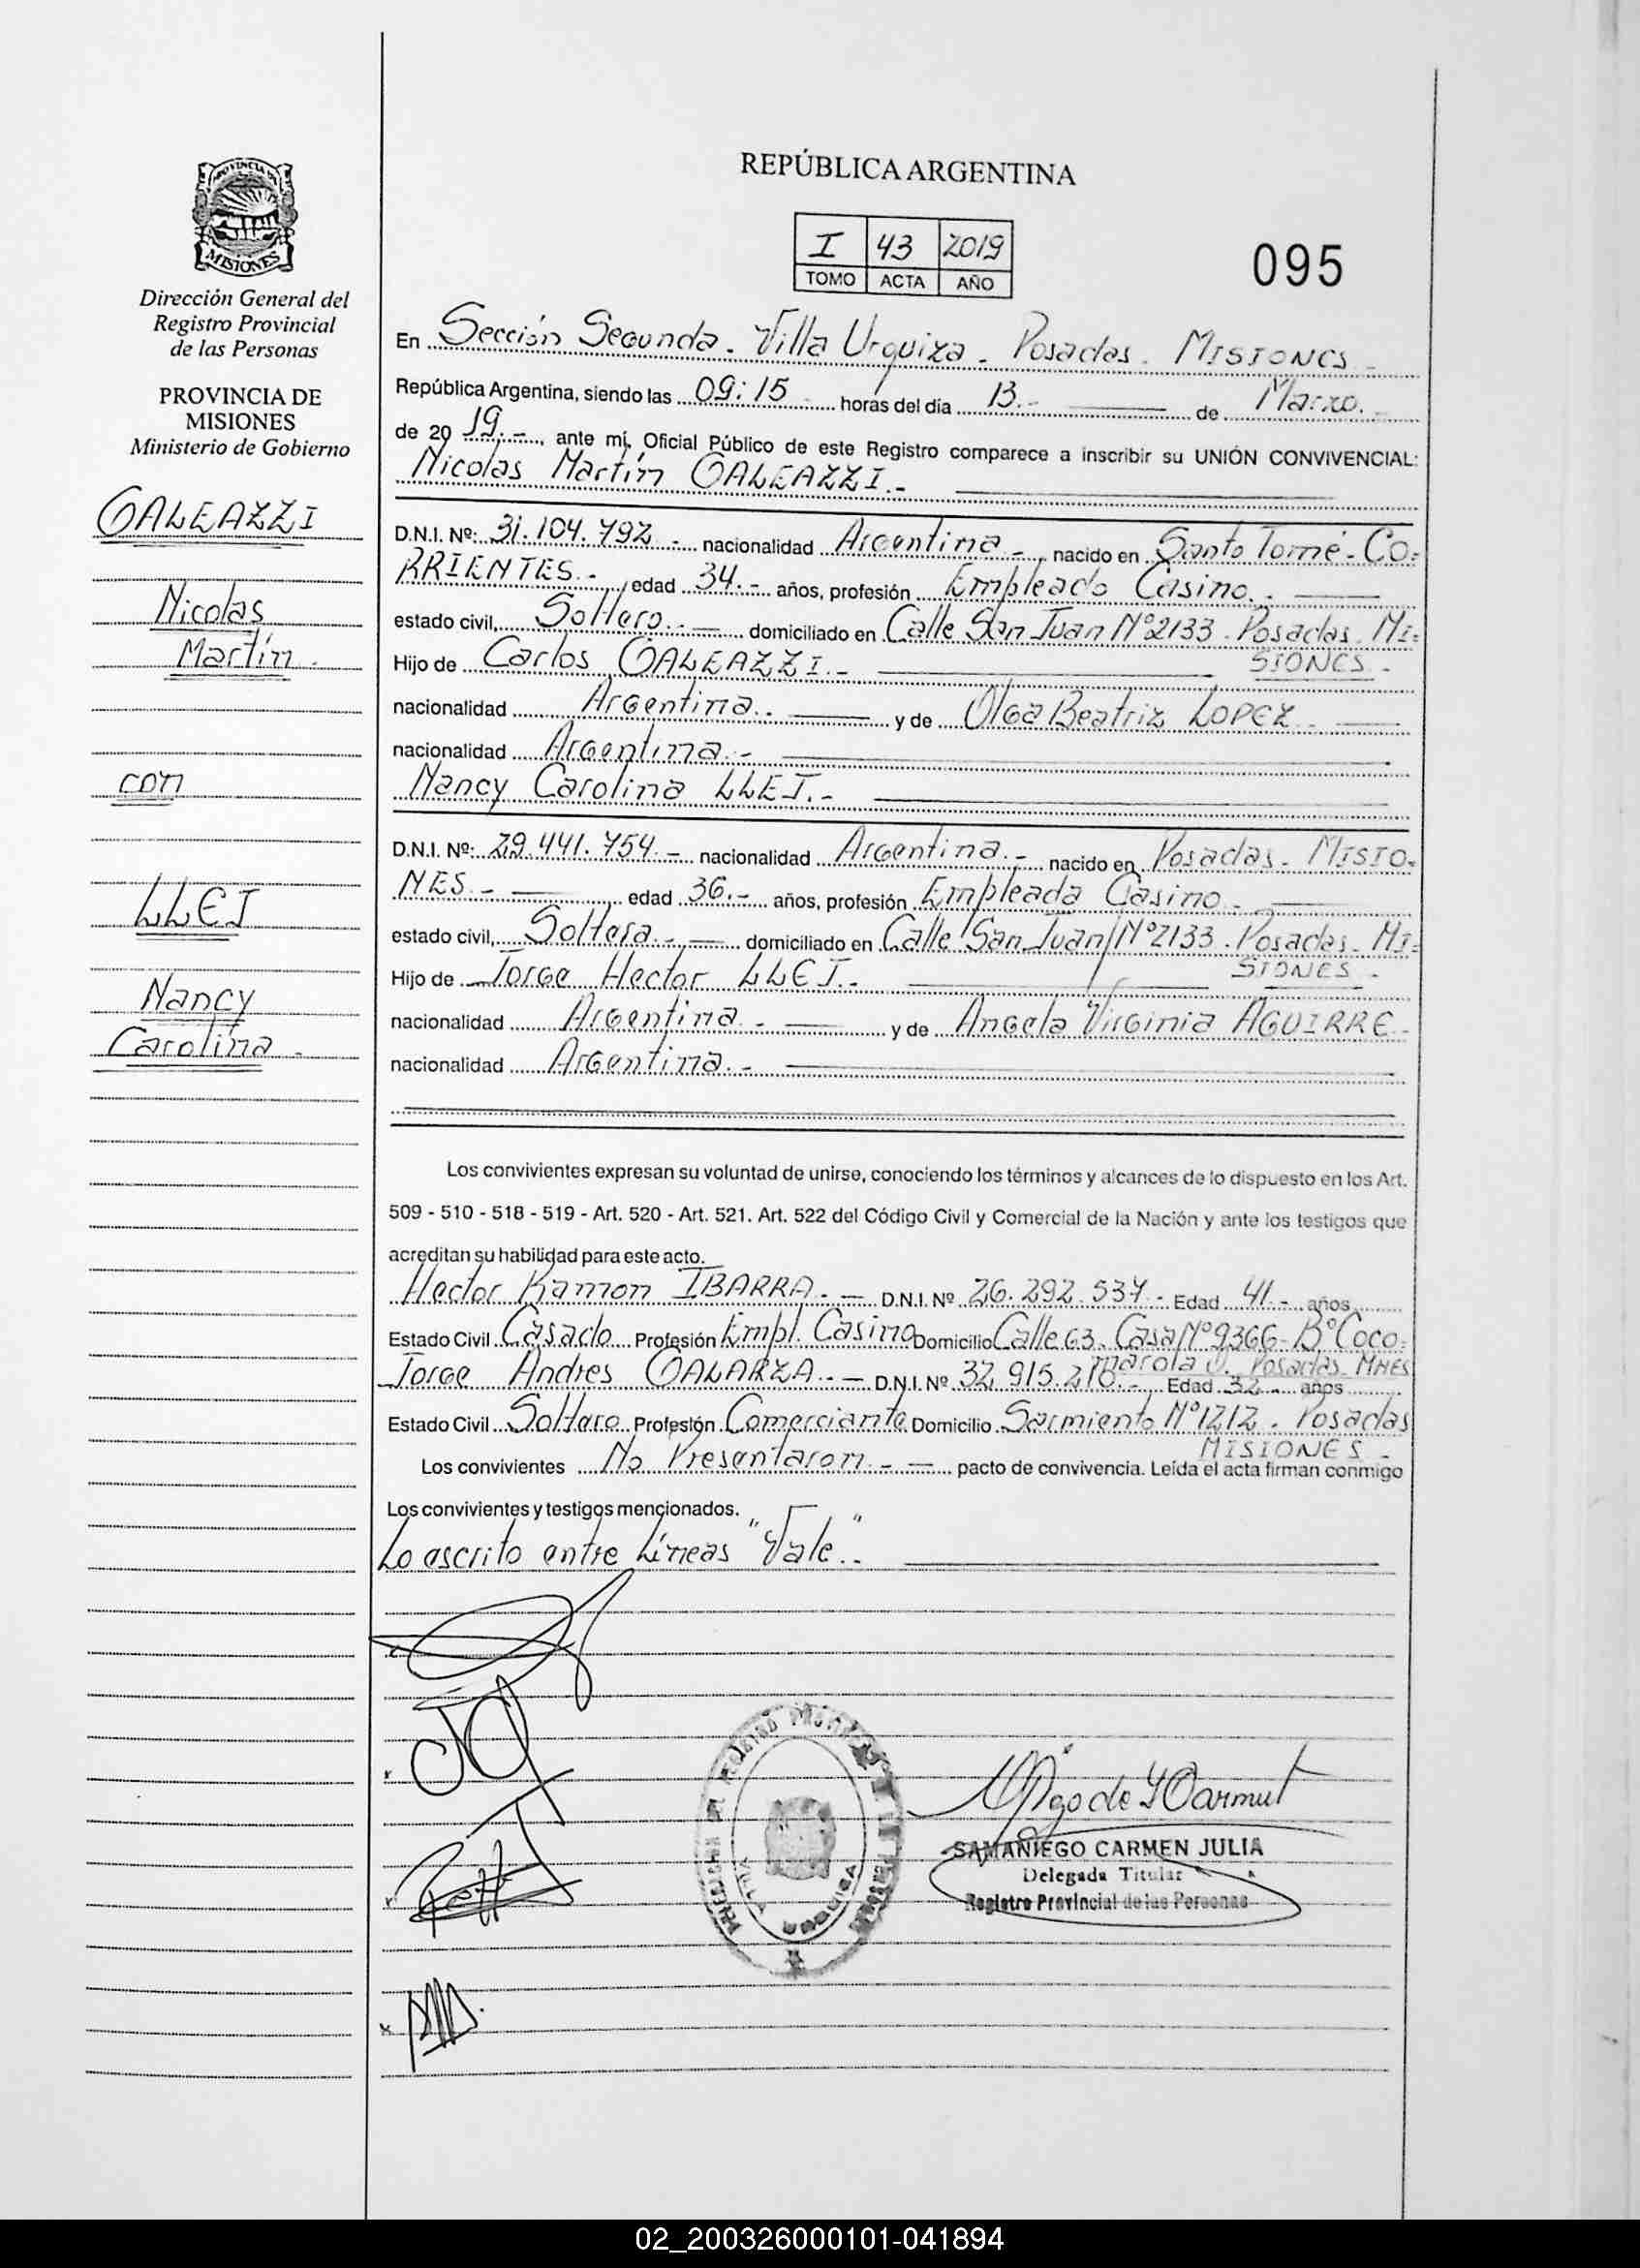 PROVINCIA DE
MISIONES
Dirección General del
Registro Provincial
de las Personas
PROVINCIA DE
MISIONES
Ministerio de Gobierno
GALEAZZI
Nicolas
Martín.
con
LLEI
Nancy
Carolina.
REPÚBLICA ARGENTINA
I 43 2019
TOMO ACTA AÑO
095
En Sección Segunda. Villa Urquiza. Posadas. MISIONES
República Argentina, siendo las 09:15 horas del día 13.- de Marzo.
de 20 19.-, ante mí, Oficial Público de este Registro comparece a inscribir su UNIÓN CONVIVENCIAL:
Nicolas Martín GALEAZZI.-
D.N.I. Nº: 31.104.792.- nacionalidad Argentina.-, nacido en Santo Tomé-CO=
RRIENTES.-, edad 34.- años, profesión Empleado Casino.
estado civil, Soltero. domiciliado en Calle San Juan Nº2133. Posadas. MI=
SIONES.-
Hijo de Carlos GALEAZZI.-
nacionalidad Argentina. y de Olga Beatriz LOPEZ
nacionalidad Argentina.-
Nancy Carolina LLEI.-
D.N.I. Nº: 29.441.754.- nacionalidad Argentina.- nacido en Posadas. MISIO=
NES.- edad 36.- años, profesión Empleada Casino.
estado civil, Soltera. domiciliado en Calle San Juan Nº2133. Posadas. MI=
SIONES.-
Hijo de Jorge Hector LLEI.-
nacionalidad Argentina.- y de Angela Virginia AGUIRRE
nacionalidad Argentina.-
Los convivientes expresan su voluntad de unirse, conociendo los términos y alcances de lo dispuesto en los Art.
509 - 510 - 518 - 519 - Art. 520 - Art. 521. Art. 522 del Código Civil y Comercial de la Nación y ante los testigos que
acreditan su habilidad para este acto.
Hector Ramon IBARRA.- D.N.I. Nº 26.292.537.- Edad 41.- años
Estado Civil Casado Profesión Empl. Casino Domicilio Calle 63. Casa Nº9366-Bº Coco=
marola O. Posadas. MNES
Jorge Andres GALARZA.- D.N.I. Nº 32.915.210.- Edad 32.- años
Estado Civil Soltero Profesión Comerciante Domicilio Sarmiento Nº1212. Posadas
MISIONES.-
Los convivientes No Presentaron.- pacto de convivencia. Leída el acta firman conmigo
Los convivientes y testigos mencionados.
Lo escrito entre Líneas "Vale".
SAMANIEGO CARMEN JULIA
Delegada Titular
Registro Provincial de las Personas
02_200326000101-041894